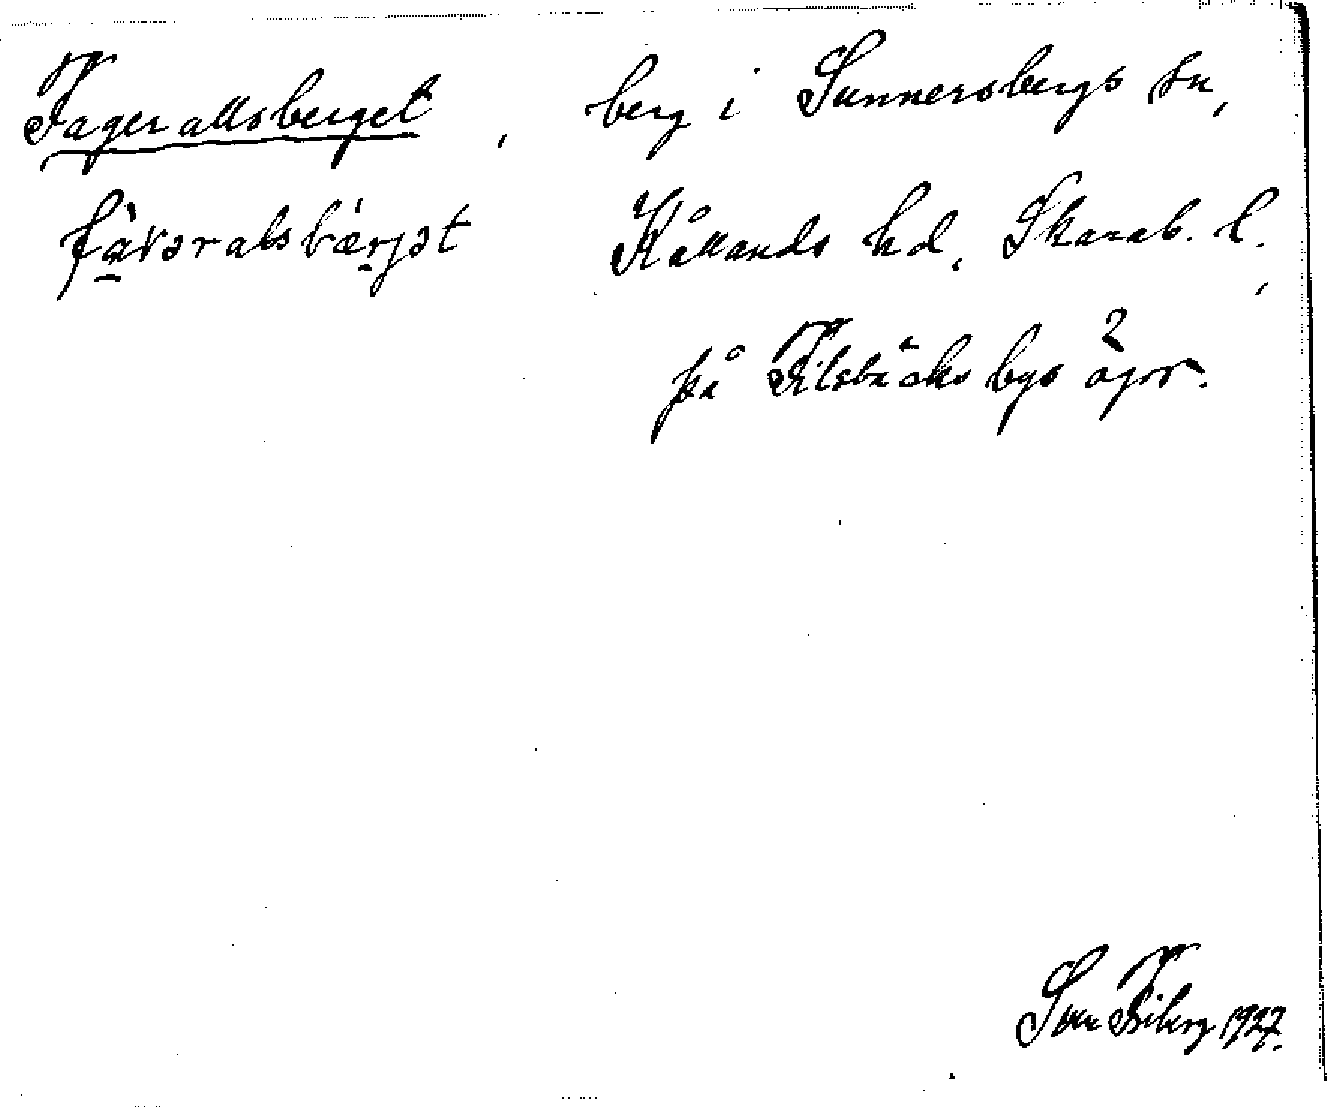 Fagerallsberget, berg i Sunnersbergs sn,
fàvəralsbærjət Kållands hd, Skarab. l.,
på Filsbäcks bys ägor.
Sven Friberg 1927.